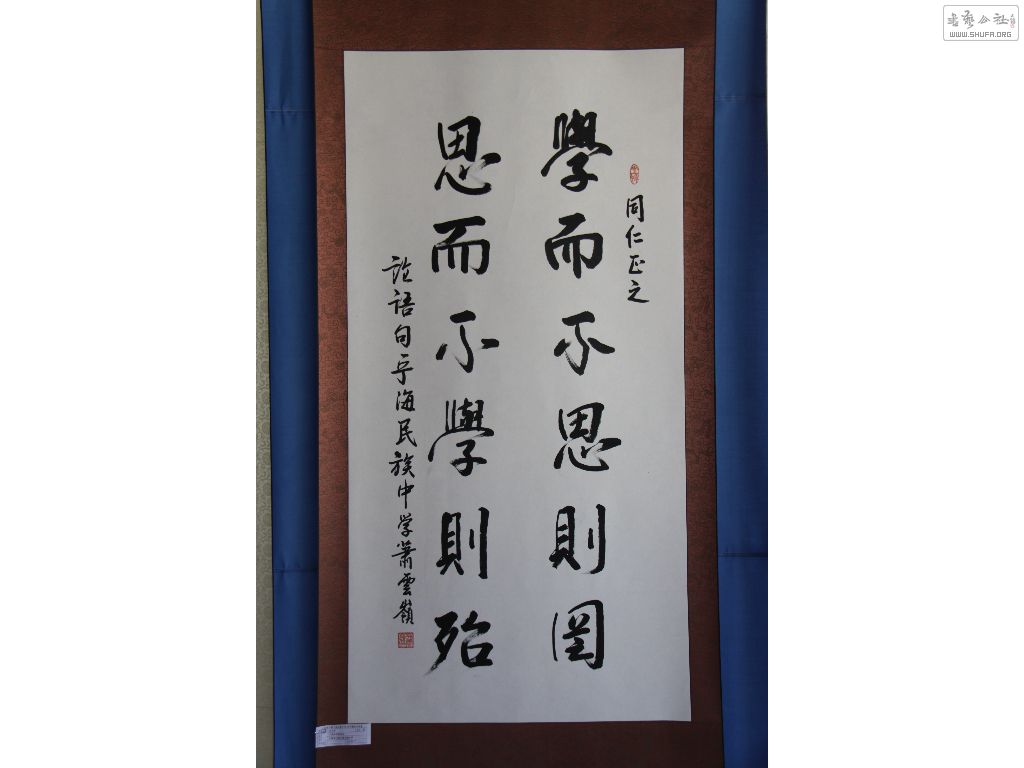 同仁正之
學而不思則罔
思而不學則殆
论语句乎海民族中学萧雲嶺
书艺公社
WWW.SHUFA.ORG